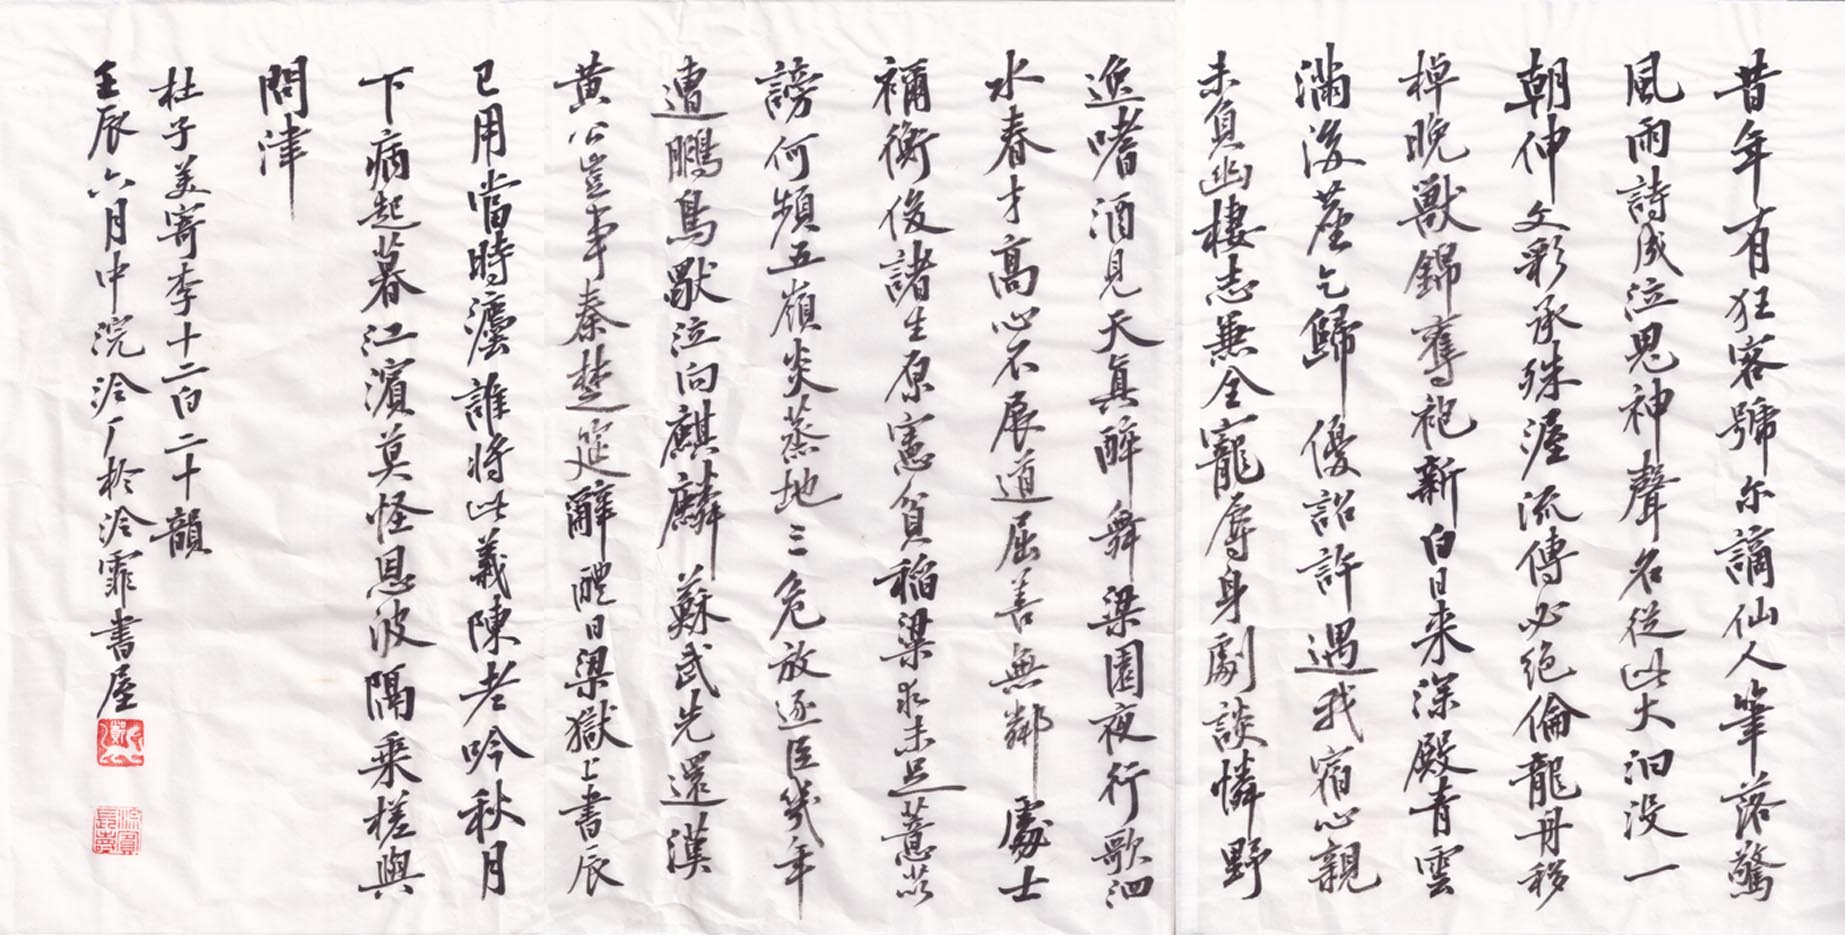 昔年有狂客號尔謫仙人筆落驚
風雨詩成泣鬼神聲名從此大汩没一
朝伸文彩承殊渥流傳必絕倫龍舟移
棹晚獸錦奪袍新白日来深殿青雲
滿後塵乞歸優詔許遇我宿心親
未負幽棲志兼全寵辱身劇談憐野
逸嗜酒見天真醉舞梁園夜行歌泗
水春才高心不展道屈善無鄰處士
禰衡俊諸生原憲貧稻梁求未足薏苡
謗何頻五嶺炎蒸地三危放逐臣幾年
遭鵬鳥獸泣向麒麟蘇武先還漢
黃公豈事秦楚筵辭醴日梁獄上書辰
已用當時法誰將此義陳老吟秋月
下病起暮江濱莫怪恩波隔乗槎與
問津
杜子美寄李十二白二十韻
壬辰六月中浣泠厂於泠霏書屋